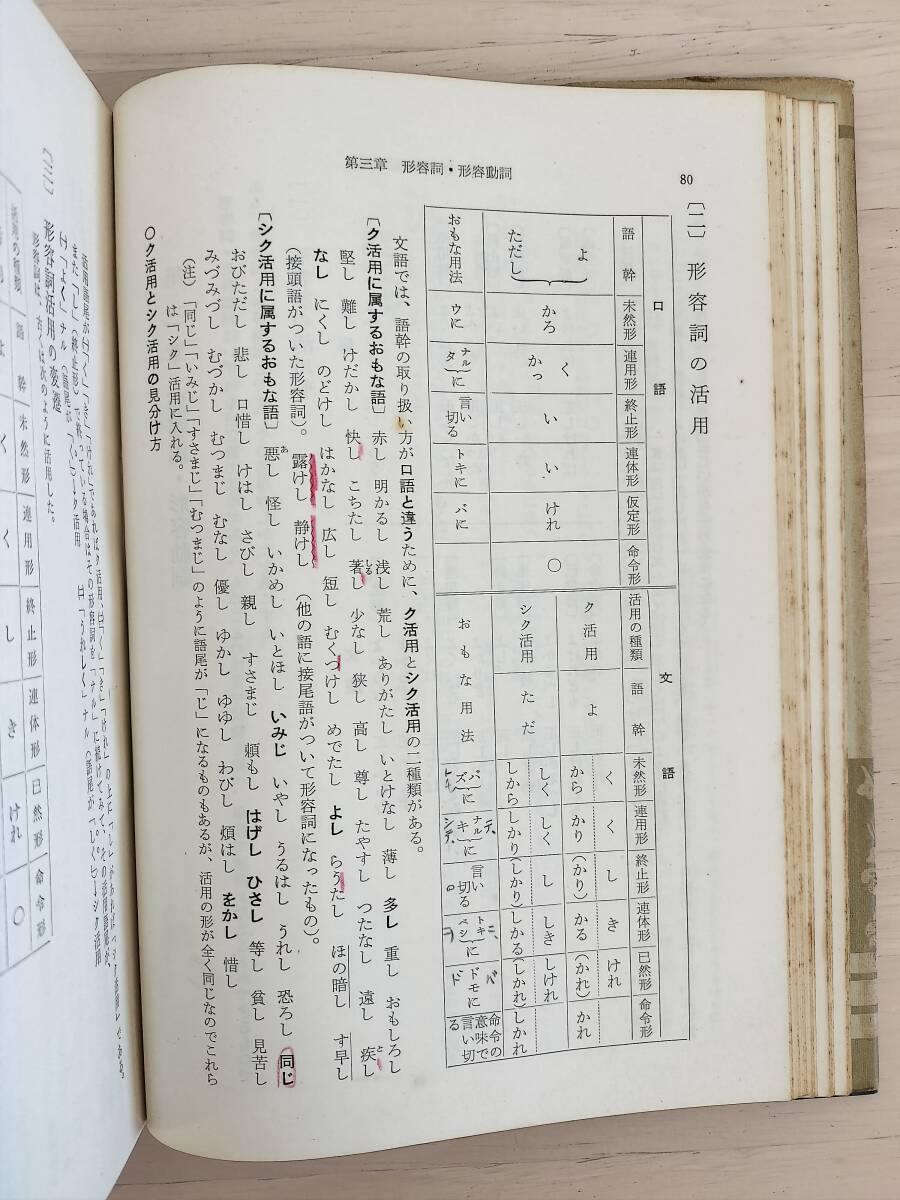 第三章 形容詞・形容動詞
80
〔二〕 形容詞の活用
口語
語幹 未然形 連用形 終止形 連体形 仮定形 命令形
よ ただし かろ く かっ い い けれ ○
おもな用法 ウに ナル タ に 言い切る トキに バに
文語
活用の種類 語幹 未然形 連用形 終止形 連体形 已然形 命令形
ク活用 よ く から く かり し (かり) き かる けれ (かれ) かれ
シク活用 ただ しく しから しく しかり し (しかり) しき しかる しけれ (しかれ) しかれ
おもな用法 バ ズ に ナル キ に 言い切る トキ ベシ に ドモに 命令の意味で言い切る
文語では、語幹の取り扱い方が口語と違うために、ク活用とシク活用の二種類がある。
〔ク活用に属するおもな語〕 赤し 明かるし 浅し 荒し ありがたし いとけなし 薄し 多し 重し おもしろし
堅し 難し けだかし 快し こちたし 著し 少なし 狭し 高し 尊し たやすし つたなし 遠し 疾し
なし にくし のどけし はかなし 広し 短し むくつけし めでたし よし らうたし ほの暗し す早し
(接頭語がついた形容詞)。 露けし 静けし (他の語に接尾語がついて形容詞になったもの)。
〔シク活用に属するおもな語〕 悪し 怪し いかめし いとほし いみじ いやし うるはし うれし 恐ろし 同じ
おびただし 悲し 口惜し けはし さびし 親し すさまじ 頼もし はげし ひさし 等し 貧し 見苦し
みづみづし むづかし むつまじ むなし 優し ゆかし ゆゆし わびし 煩はし をかし 惜し
(注) 「同じ」「いみじ」「すさまじ」「むつまじ」のように語尾が「じ」になるものもあるが、活用の形が全く同じなのでこれら
は「シク」活用に入れる。
○ク活用とシク活用の見分け方
〔三〕 形容詞活用の変遷
形容詞は、古くは次のように活用した。
語幹 未然形 連用形 終止形 連体形 已然形 命令形
よ く く し き けれ ○